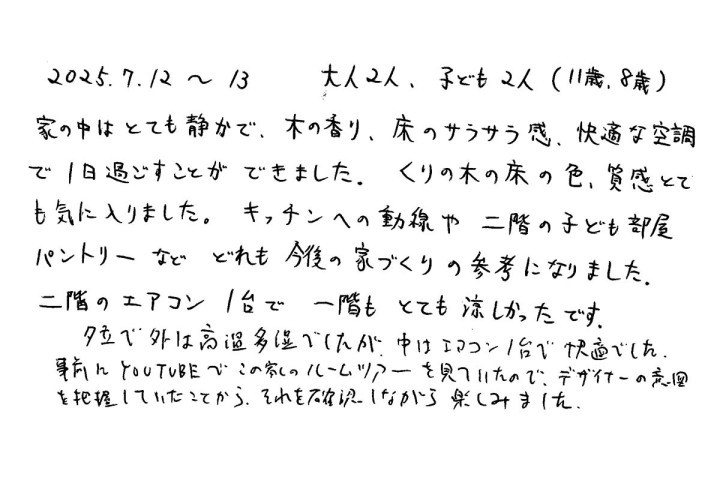 2025.7.12 ～ 13　大人2人、子ども2人（11歳、8歳）
家の中はとても静かで、木の香り、床のサラサラ感、快適な空調
で1日過ごすことができました。くりの木の床の色、質感とて
も気に入りました。キッチンへの動線や二階の子ども部屋
パントリーなどどれも今後の家づくりの参考になりました。
二階のエアコン1台で一階もとても涼しかったです。
夕立で外は高温多湿でしたが、中はエアコン1台で快適でした。
事前にYOUTUBEでこの家のルームツアーを見ていたので、デザイナーの意図
を把握していたことから、それを確認しながら楽しみました。